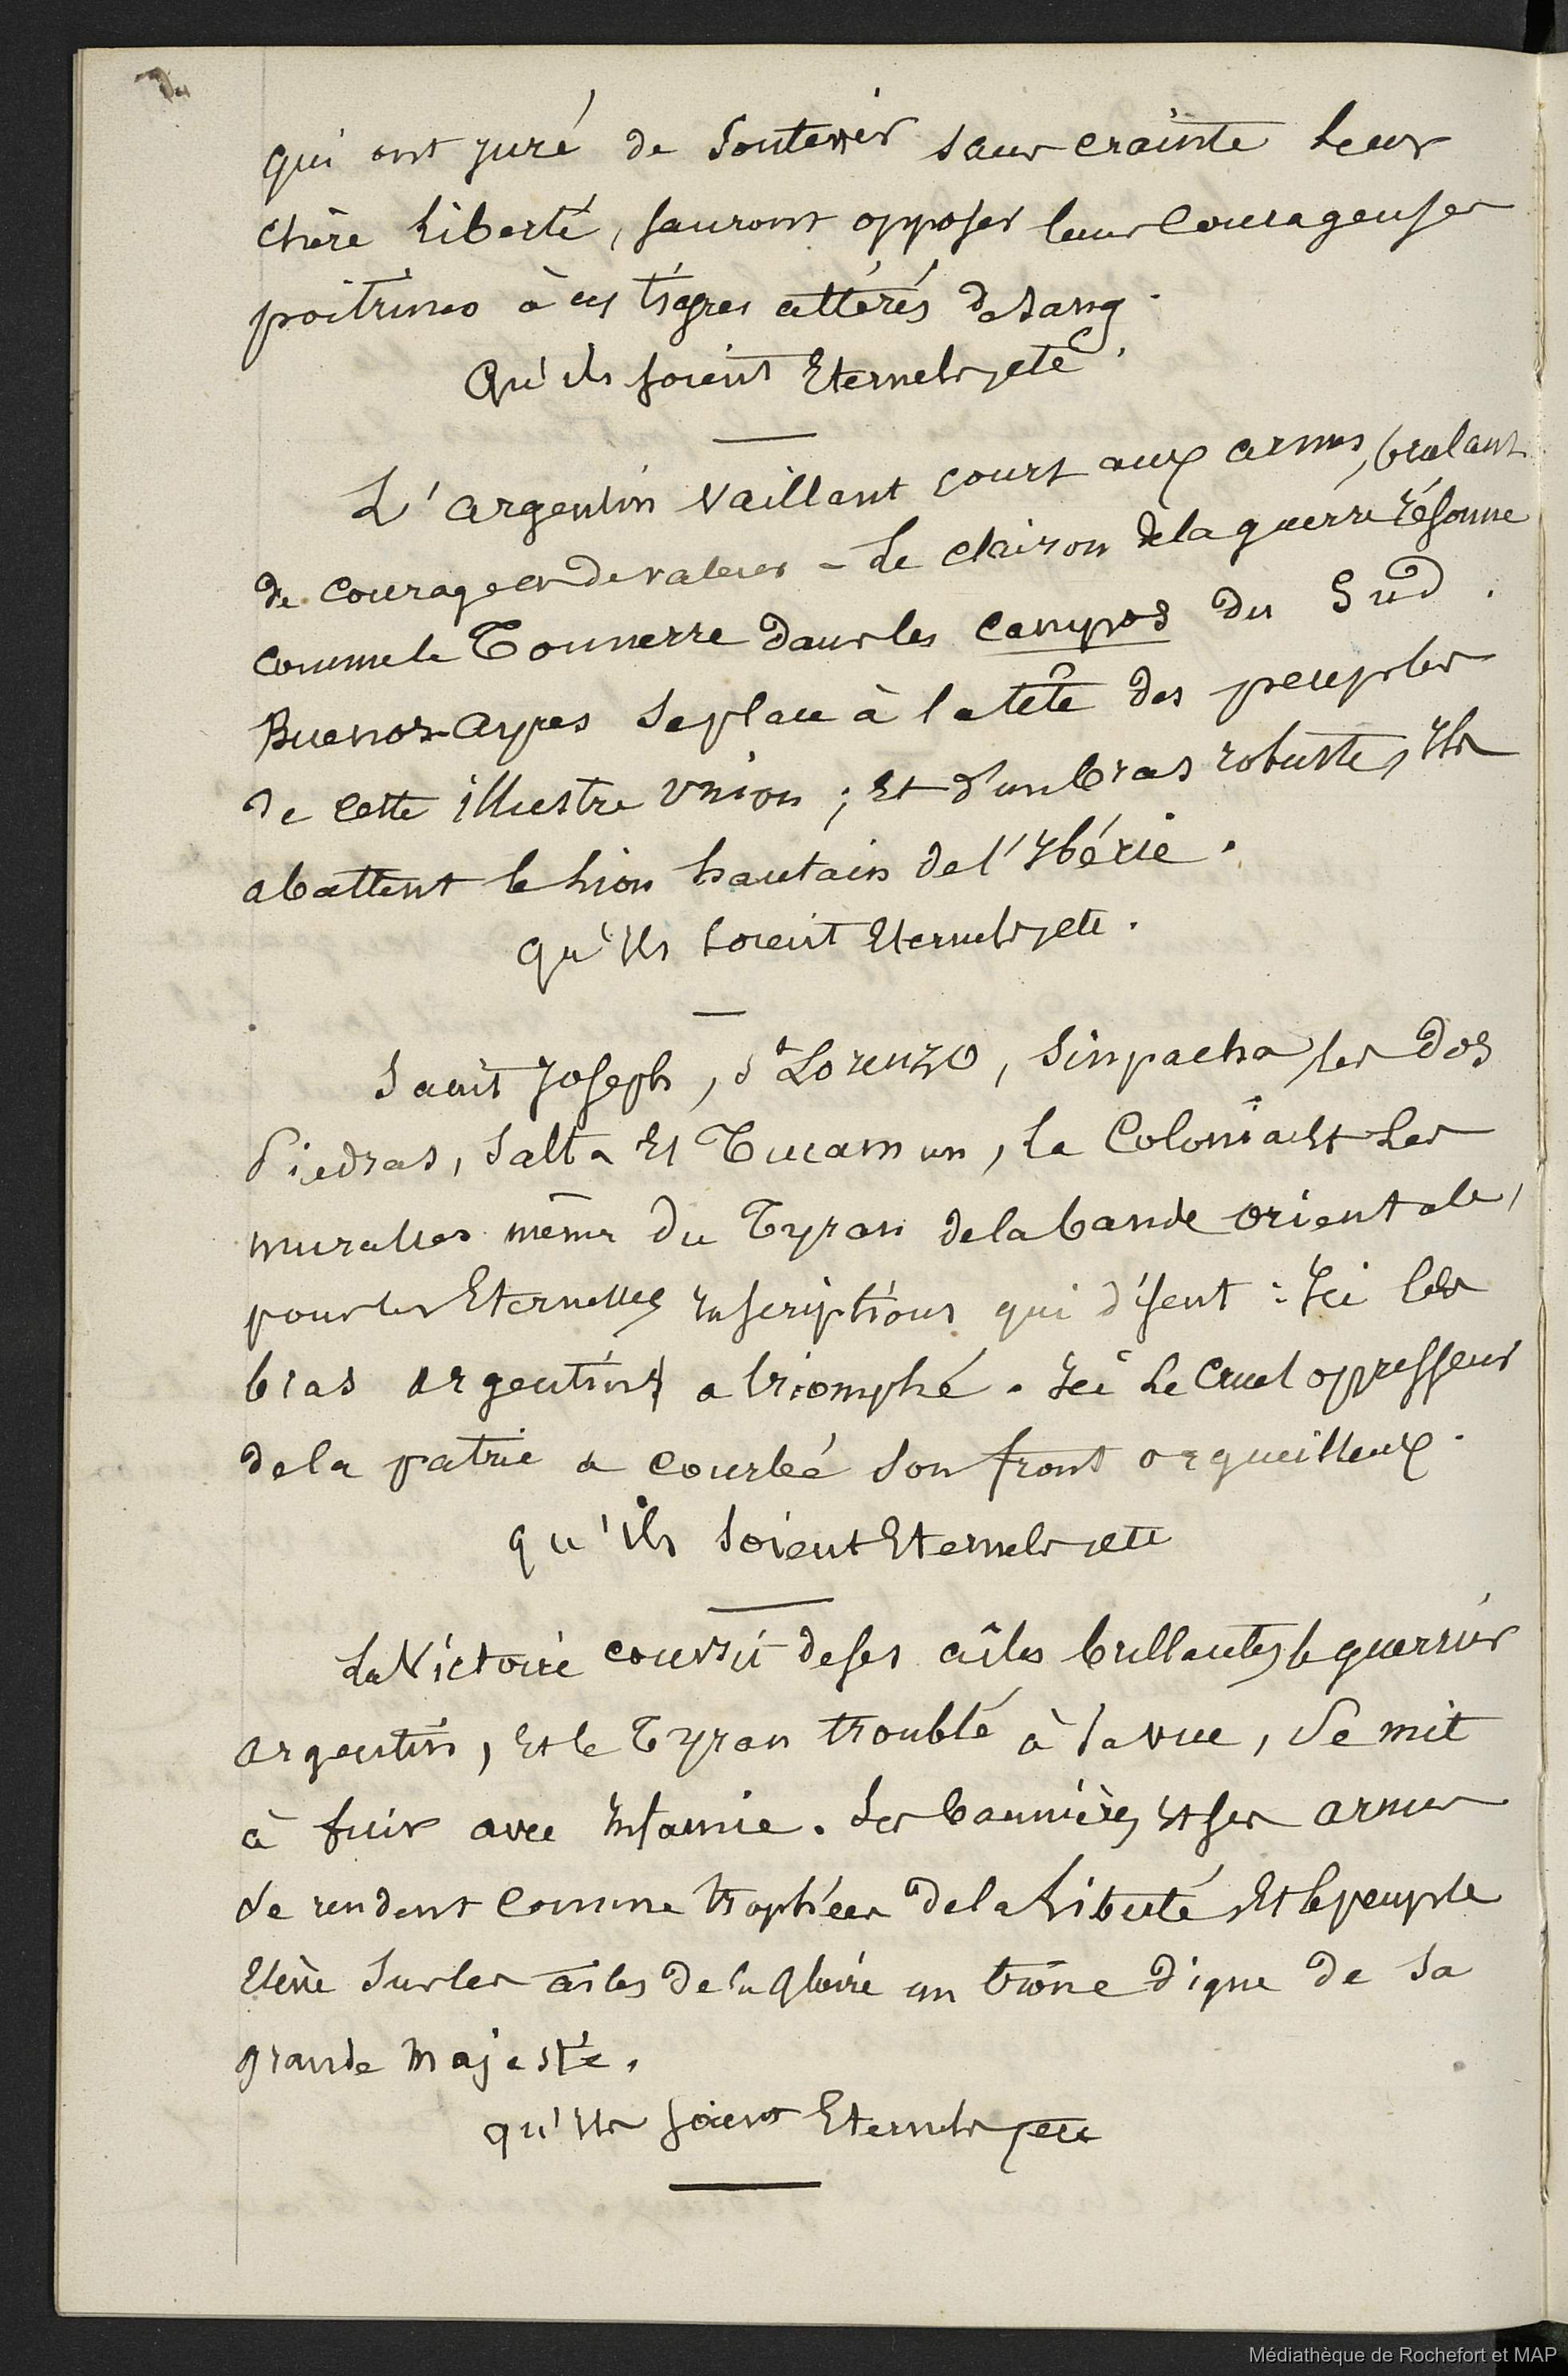 qui ont juré de soutenir sans crainte leur
chère liberté, sauront opposer leurs courageuses
poitrines à ces tigres altérés de sang.
Qu'ils soient Eternels, etc.
L'argentin vaillant court aux armes, brulant
de courage et de valeur - Le clairon de la guerre résonne
comme le Tonnerre dans les campos du Sud.
Buenos-ayres se place à la tête des peuples
de cette illustre union ; Et d'un bras robuste, Ils
abattent le Lion hautain de l'Ibérie.
qu'Ils soient Eternels, etc.
Saint Joseph, St Lorenzo, Sinpacha, les Dos
Piedras, Salta Et Tucaman, la Colonia Et les
murailles même du Tyran de la bande orientale,
pour les Eternelles Inscriptions qui disent : Ici les
bras argentins a triomphé. Ici le Cruel oppresseur
de la patrie a courbé son front orgueilleux.
qu'ils soient Eternels, etc
La Victoire couvrit de ses aîles brillantes, le guerrier
argentin, Et le Tyran troublé à sa vue, Se mit
à fuir avec Infamie. Ses bannières Et ses armes
se rendent comme trophées de la Liberté, Et le peuple
Elève sur les ailes de la Gloire un trône digne de sa
grande Majesté.
qu'Ils soient Eternels, etc
Médiathèque de Rochefort et MAP